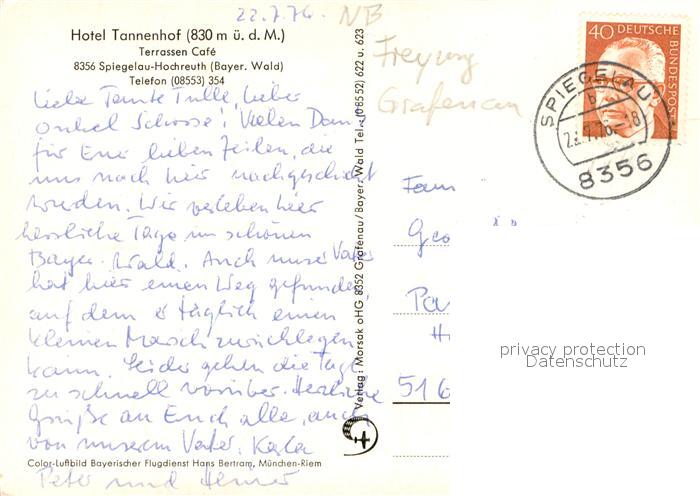 22.7.76. NB
Hotel Tannenhof (830 m ü. d. M.)
Terrassen Café
8356 Spiegelau-Hochreuth (Bayer. Wald)
Telefon (08553) 354
Liebe Tante Tulle, lieber
Onkel Schosse! Vielen Dank
für Eure lieben Zeilen, die
uns nach hier nachgeschickt
wurden. Wir verleben hier
herrliche Tage im schönen
Bayer. Wald. Auch unser Vater
hat hier einen Weg gefunden,
auf dem er täglich einen
kleinen Marsch zurücklegen
kann. Leider gehen die Tage
zu schnell vorüber. Herzliche
Grüße an Euch alle, auch
von unserem Vater. Karla
Peter und
Color-Luftbild Bayerischer Flugdienst Hans Bertram, München-Riem
Verlag: Morsak oHG 8352 Grafenau/Bayer. Wald Tel. (08552) 622 u. 623
Freyung
Grafenau
40 DEUTSCHE BUNDESPOST
SPIEGELAU
b
22.7.76.-18
8356
Fam
Geo
Pa
H
516
privacy protection
Datenschutz